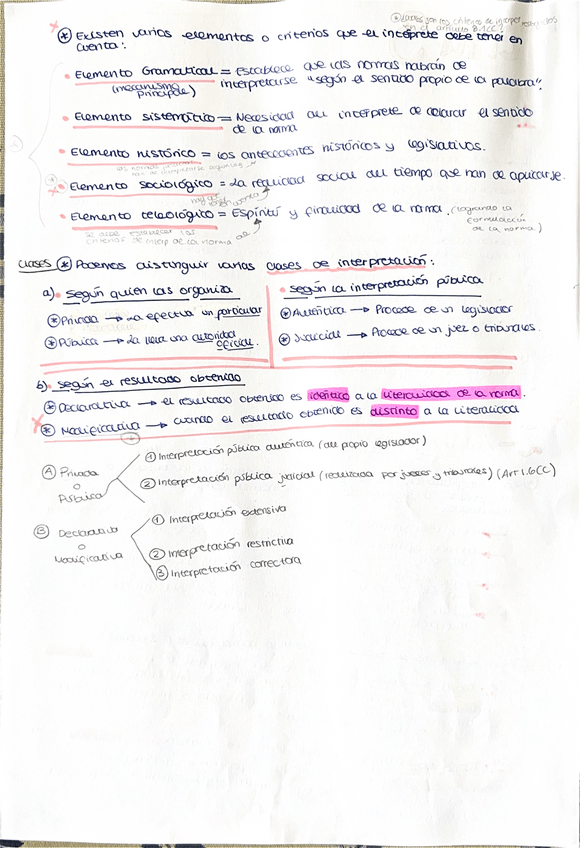 * ¿Cuáles son los criterios de interpret.
en el artículo 3.1CC?
* Existen varios elementos o criterios que el intérprete debe tener en
cuenta:
• Elemento Gramatical = Establece que las normas habrán de
(mecanismo interpretarse "según el sentido propio de la palabra".
principale)
• Elemento sistemático = Necesidad del intérprete de aclarar el sentido
de la norma
• Elemento histórico = los antecedentes históricos y legislativos.
• Elemento sociológico = La realidad social del tiempo que han de aplicarse.
• Elemento teleológico = Espíritu y finalidad de la norma. (logrando la
formulación
de la norma)
criterios de interp de la norma
clases * Podemos distinguir varias clases de interpretación:
a). Según quien las organiza
* Privada → La efectua un particular
* Pública → La lleva una autoridad
oficial.
• Según la interpretación pública
* Auténtica → Procede de un legislador
* Judicial → Procede de un juez o tribunales.
b). Según el resultado obtenido
* Declarativa → el resultado obtenido es idéntico a la literalidad de la norma.
* Modificativa → cuando el resultado obtenido es distinto a la literalidad
A Privada
o
Pública
1 Interpretación pública auténtica (del propio legislador)
2 Interpretación pública judicial (realizada por jueces y tribunales) (Art 1.6CC)
B Declarativa
o
Modificativa
1 Interpretación extensiva
2 Interpretación restrictiva
3 Interpretación correctora